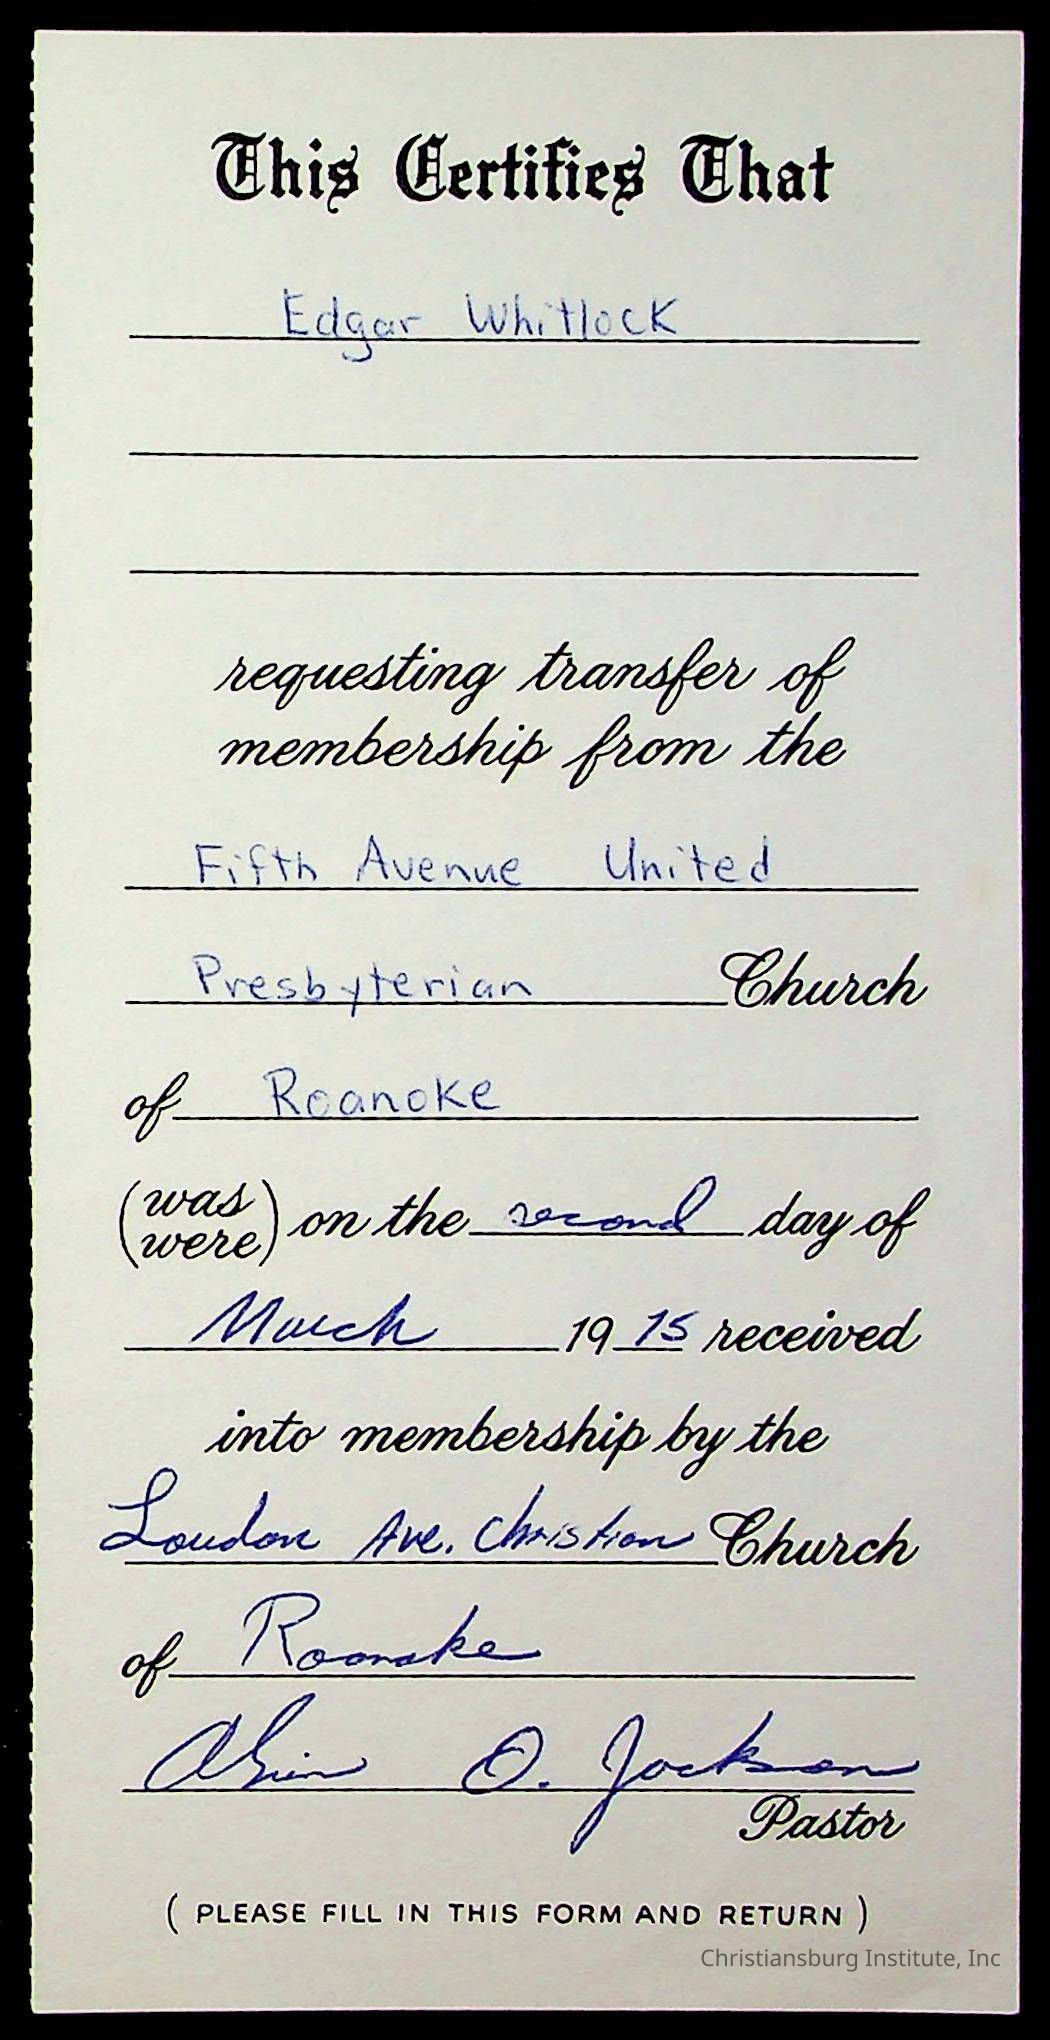 This Certifies That
Edgar Whitlock
requesting transfer of
membership from the
Fifth Avenue United
Presbyterian Church
of Roanoke
(was
were) on the second day of
March 19 75 received
into membership by the
Loudon Ave. Christian Church
of Roanoke
Alvin O. Jackson
Pastor
( PLEASE FILL IN THIS FORM AND RETURN )
Christiansburg Institute, Inc